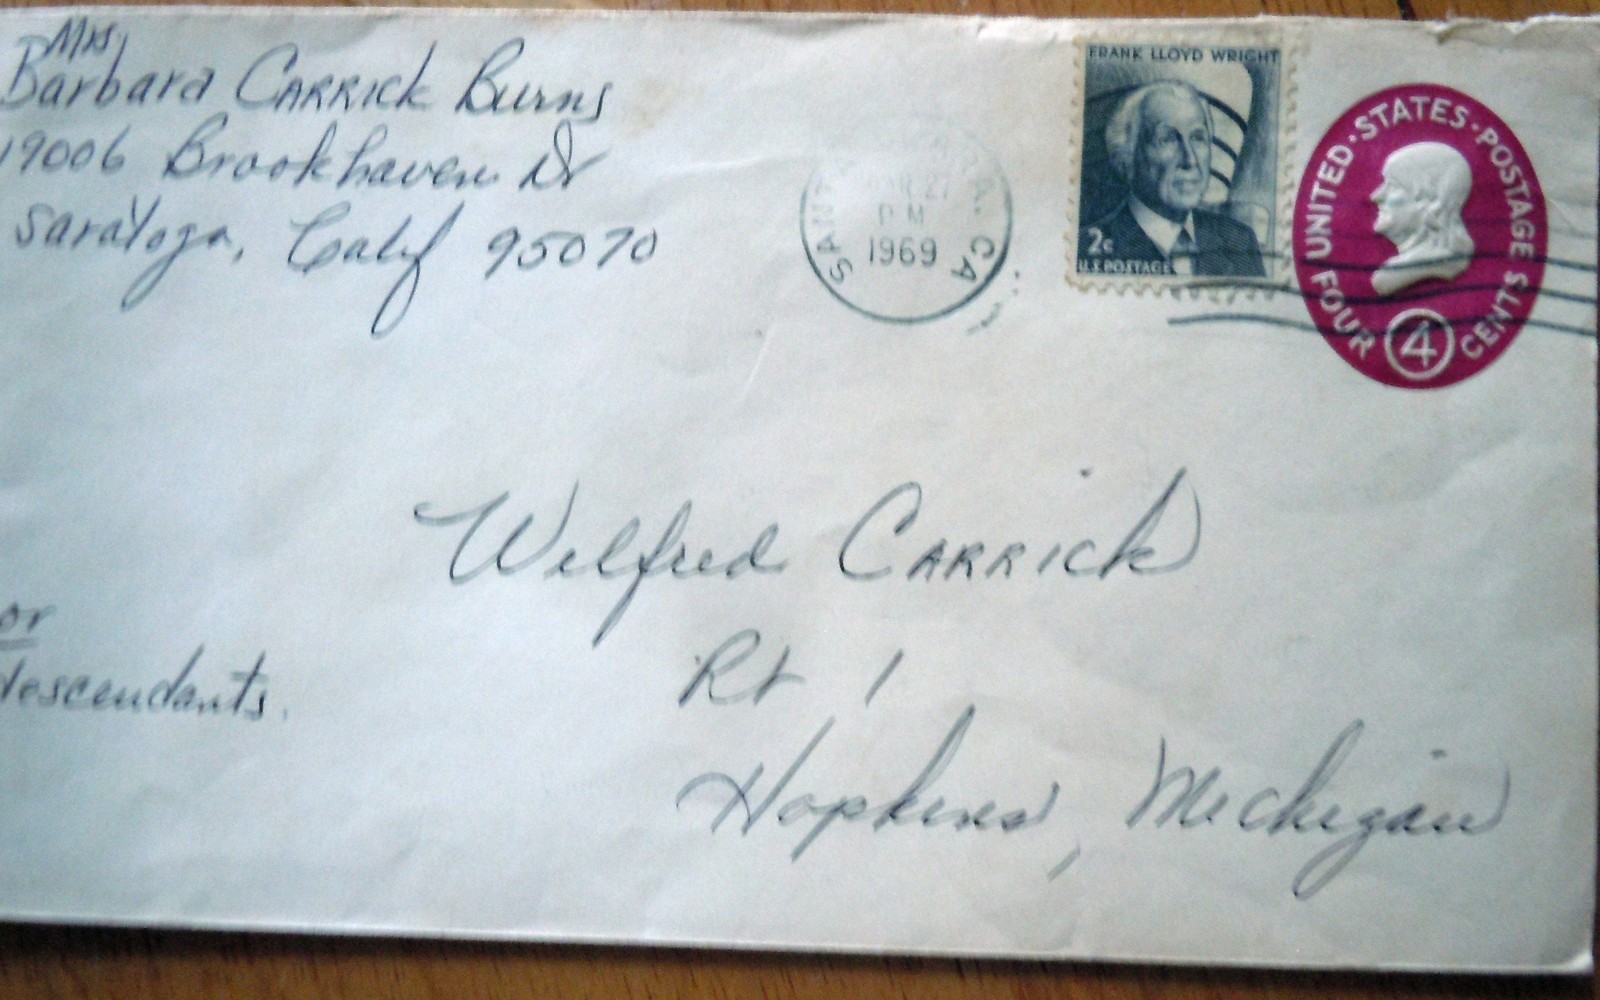 Mrs
Barbara CARRICK Burns
19006 Brookhaven Dr
Saratoga, Calif 95070
SANTA CLARA. CA
MAR 27
PM
1969
FRANK LLOYD WRIGHT
2c
U.S. POSTAGE
UNITED·STATES·POSTAGE
FOUR 4 CENTS
Wilfred CARRICK
Rt 1
Hopkins, Michigan
or
descendants.